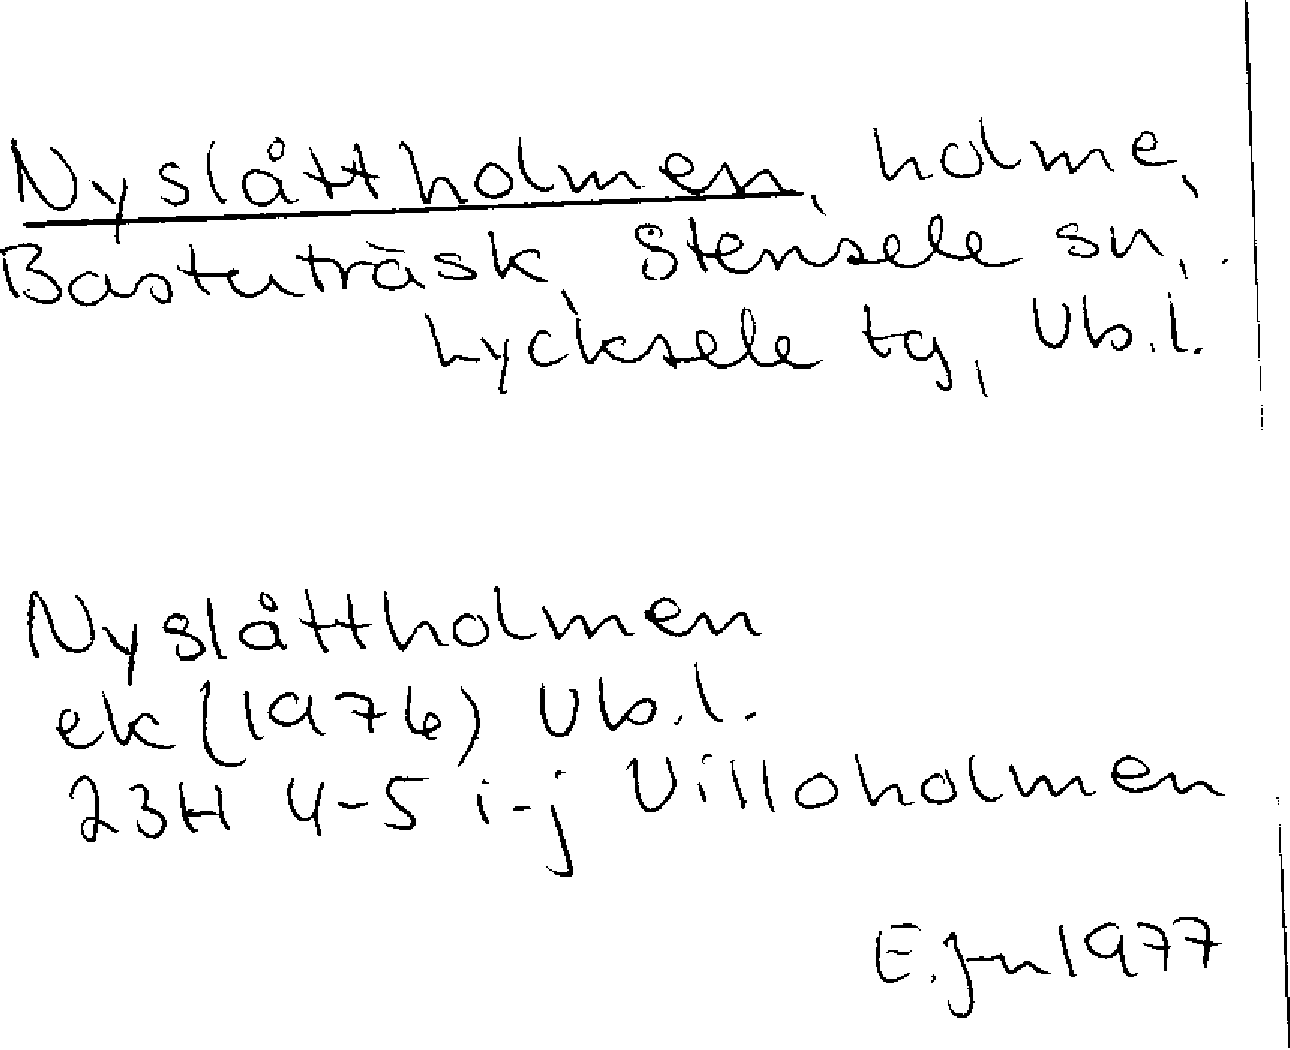 Nyslåttholmen, holme,
Bastuträsk, Stensele sn,
Lycksele tg, Vb.l.
Nyslåttholmen
ek (1976) Vb.l.
23H 4-5 i-j Villoholmen
E. Jn 1977